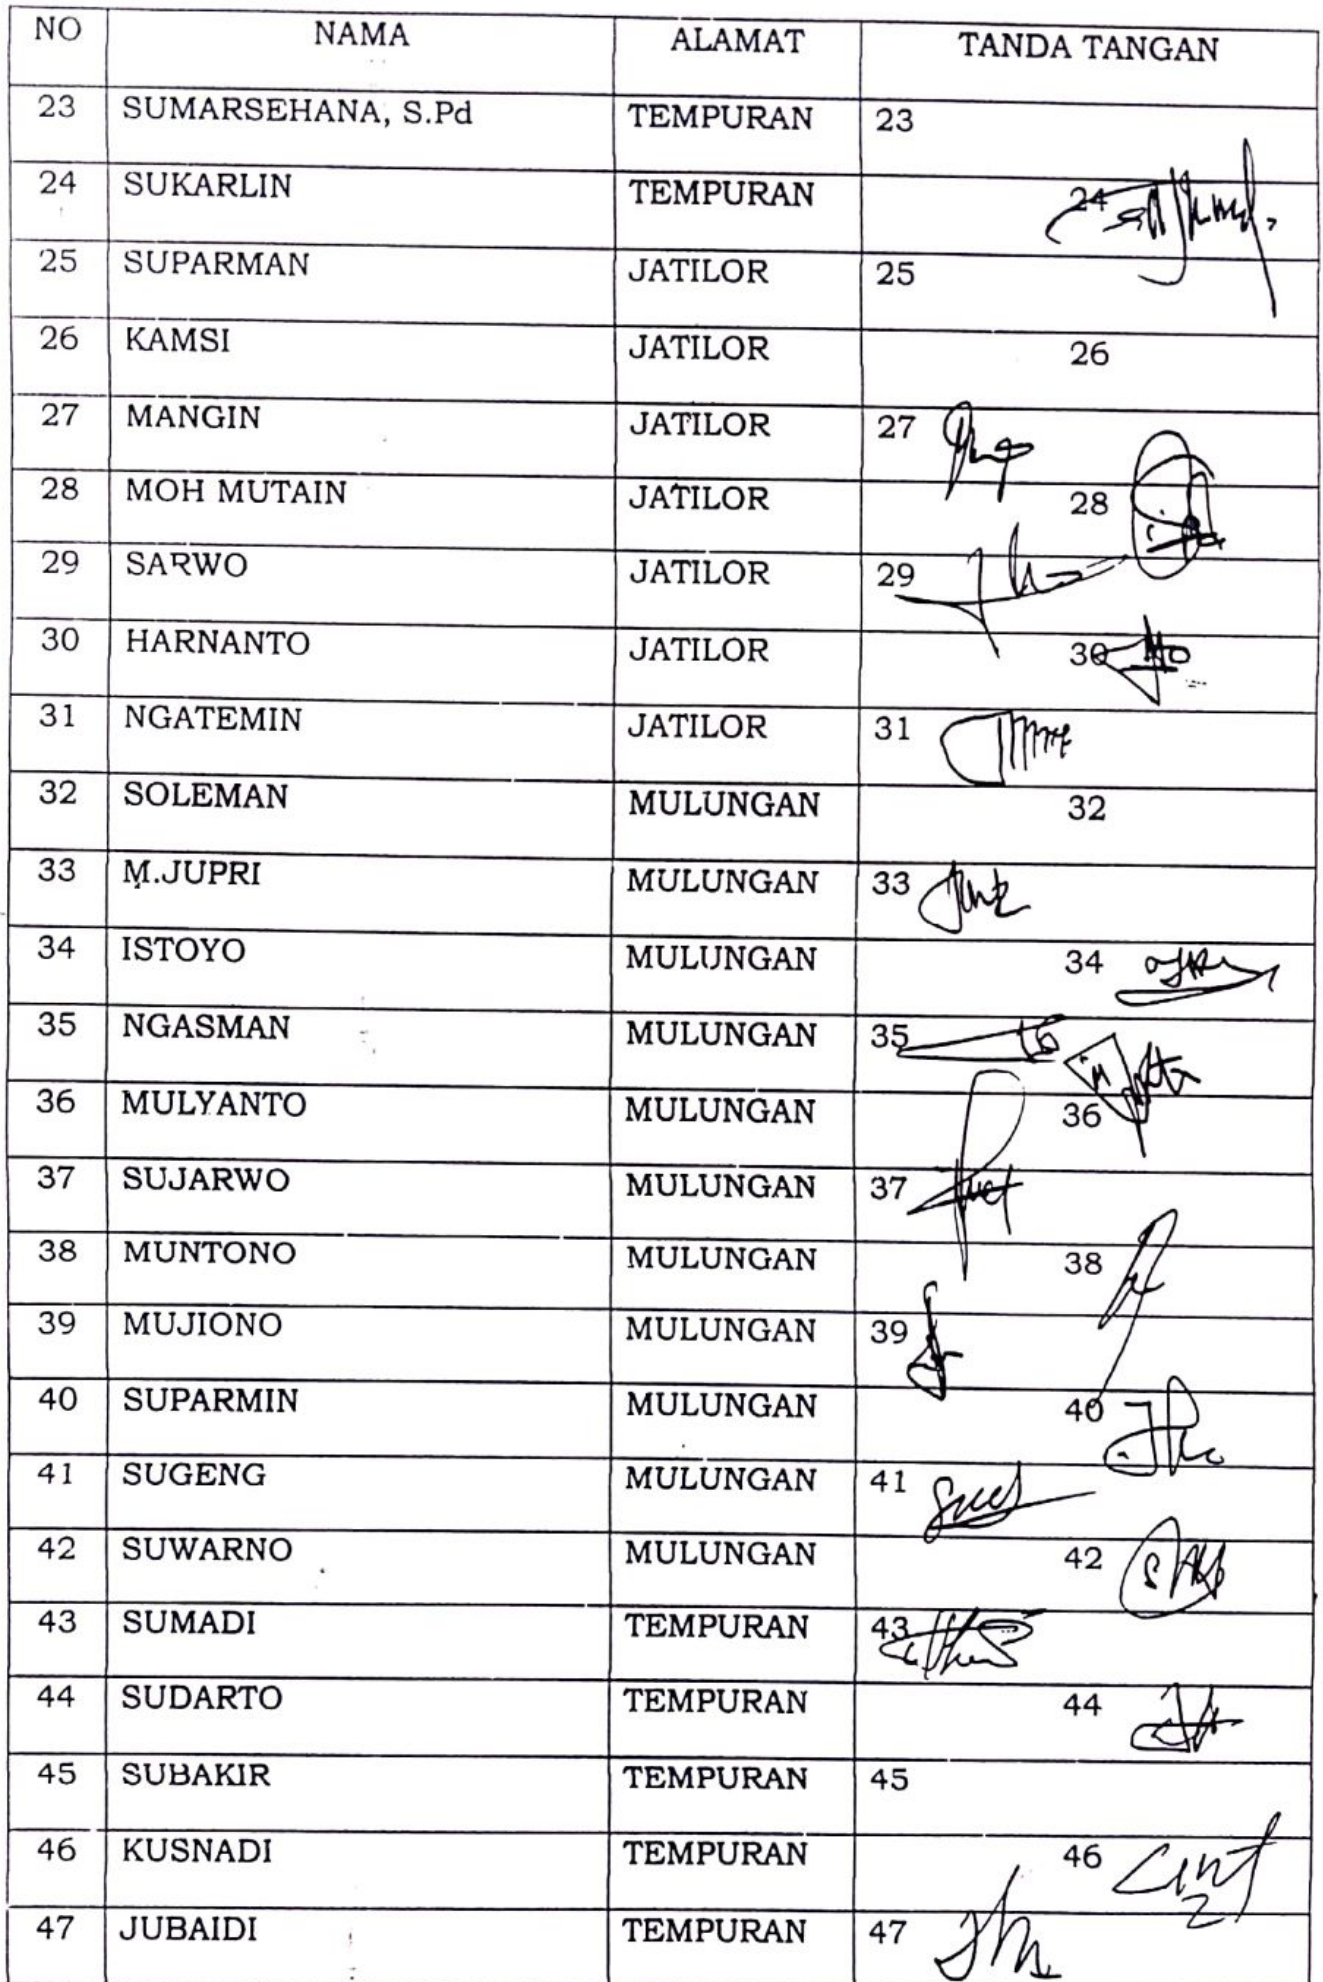 NO NAMA ALAMAT TANDA TANGAN
23 SUMARSEHANA, S.Pd TEMPURAN 23
24 SUKARLIN TEMPURAN 24
25 SUPARMAN JATILOR 25
26 KAMSI JATILOR 26
27 MANGIN JATILOR 27
28 MOH MUTAIN JATILOR 28
29 SARWO JATILOR 29
30 HARNANTO JATILOR 30
31 NGATEMIN JATILOR 31
32 SOLEMAN MULUNGAN 32
33 M.JUPRI MULUNGAN 33
34 ISTOYO MULUNGAN 34
35 NGASMAN MULUNGAN 35
36 MULYANTO MULUNGAN 36
37 SUJARWO MULUNGAN 37
38 MUNTONO MULUNGAN 38
39 MUJIONO MULUNGAN 39
40 SUPARMIN MULUNGAN 40
41 SUGENG MULUNGAN 41
42 SUWARNO MULUNGAN 42
43 SUMADI TEMPURAN 43
44 SUDARTO TEMPURAN 44
45 SUBAKIR TEMPURAN 45
46 KUSNADI TEMPURAN 46
47 JUBAIDI TEMPURAN 47